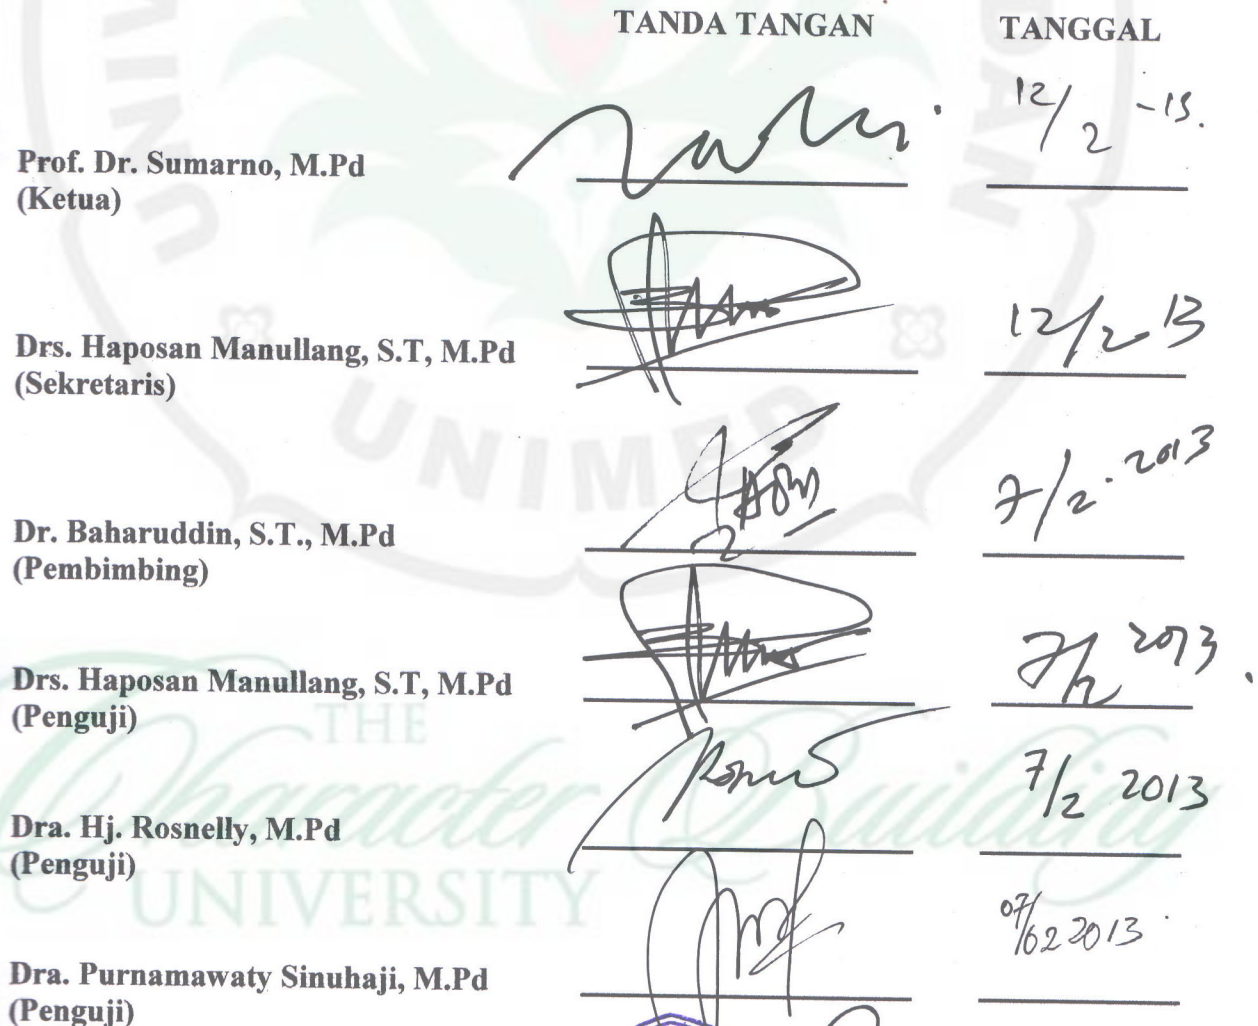 TANDA TANGAN TANGGAL
12/2 -13.
Prof. Dr. Sumarno, M.Pd
(Ketua)
Drs. Haposan Manullang, S.T, M.Pd 12/2 13
(Sekretaris)
7/2. 2013
Dr. Baharuddin, S.T., M.Pd
(Pembimbing)
Drs. Haposan Manullang, S.T, M.Pd 7/2 2013
(Penguji)
7/2 2013
Dra. Hj. Rosnelly, M.Pd
(Penguji)
07/02 2013
Dra. Purnamawaty Sinuhaji, M.Pd
(Penguji)
UNIMED
THE
Character Building
UNIVERSITY